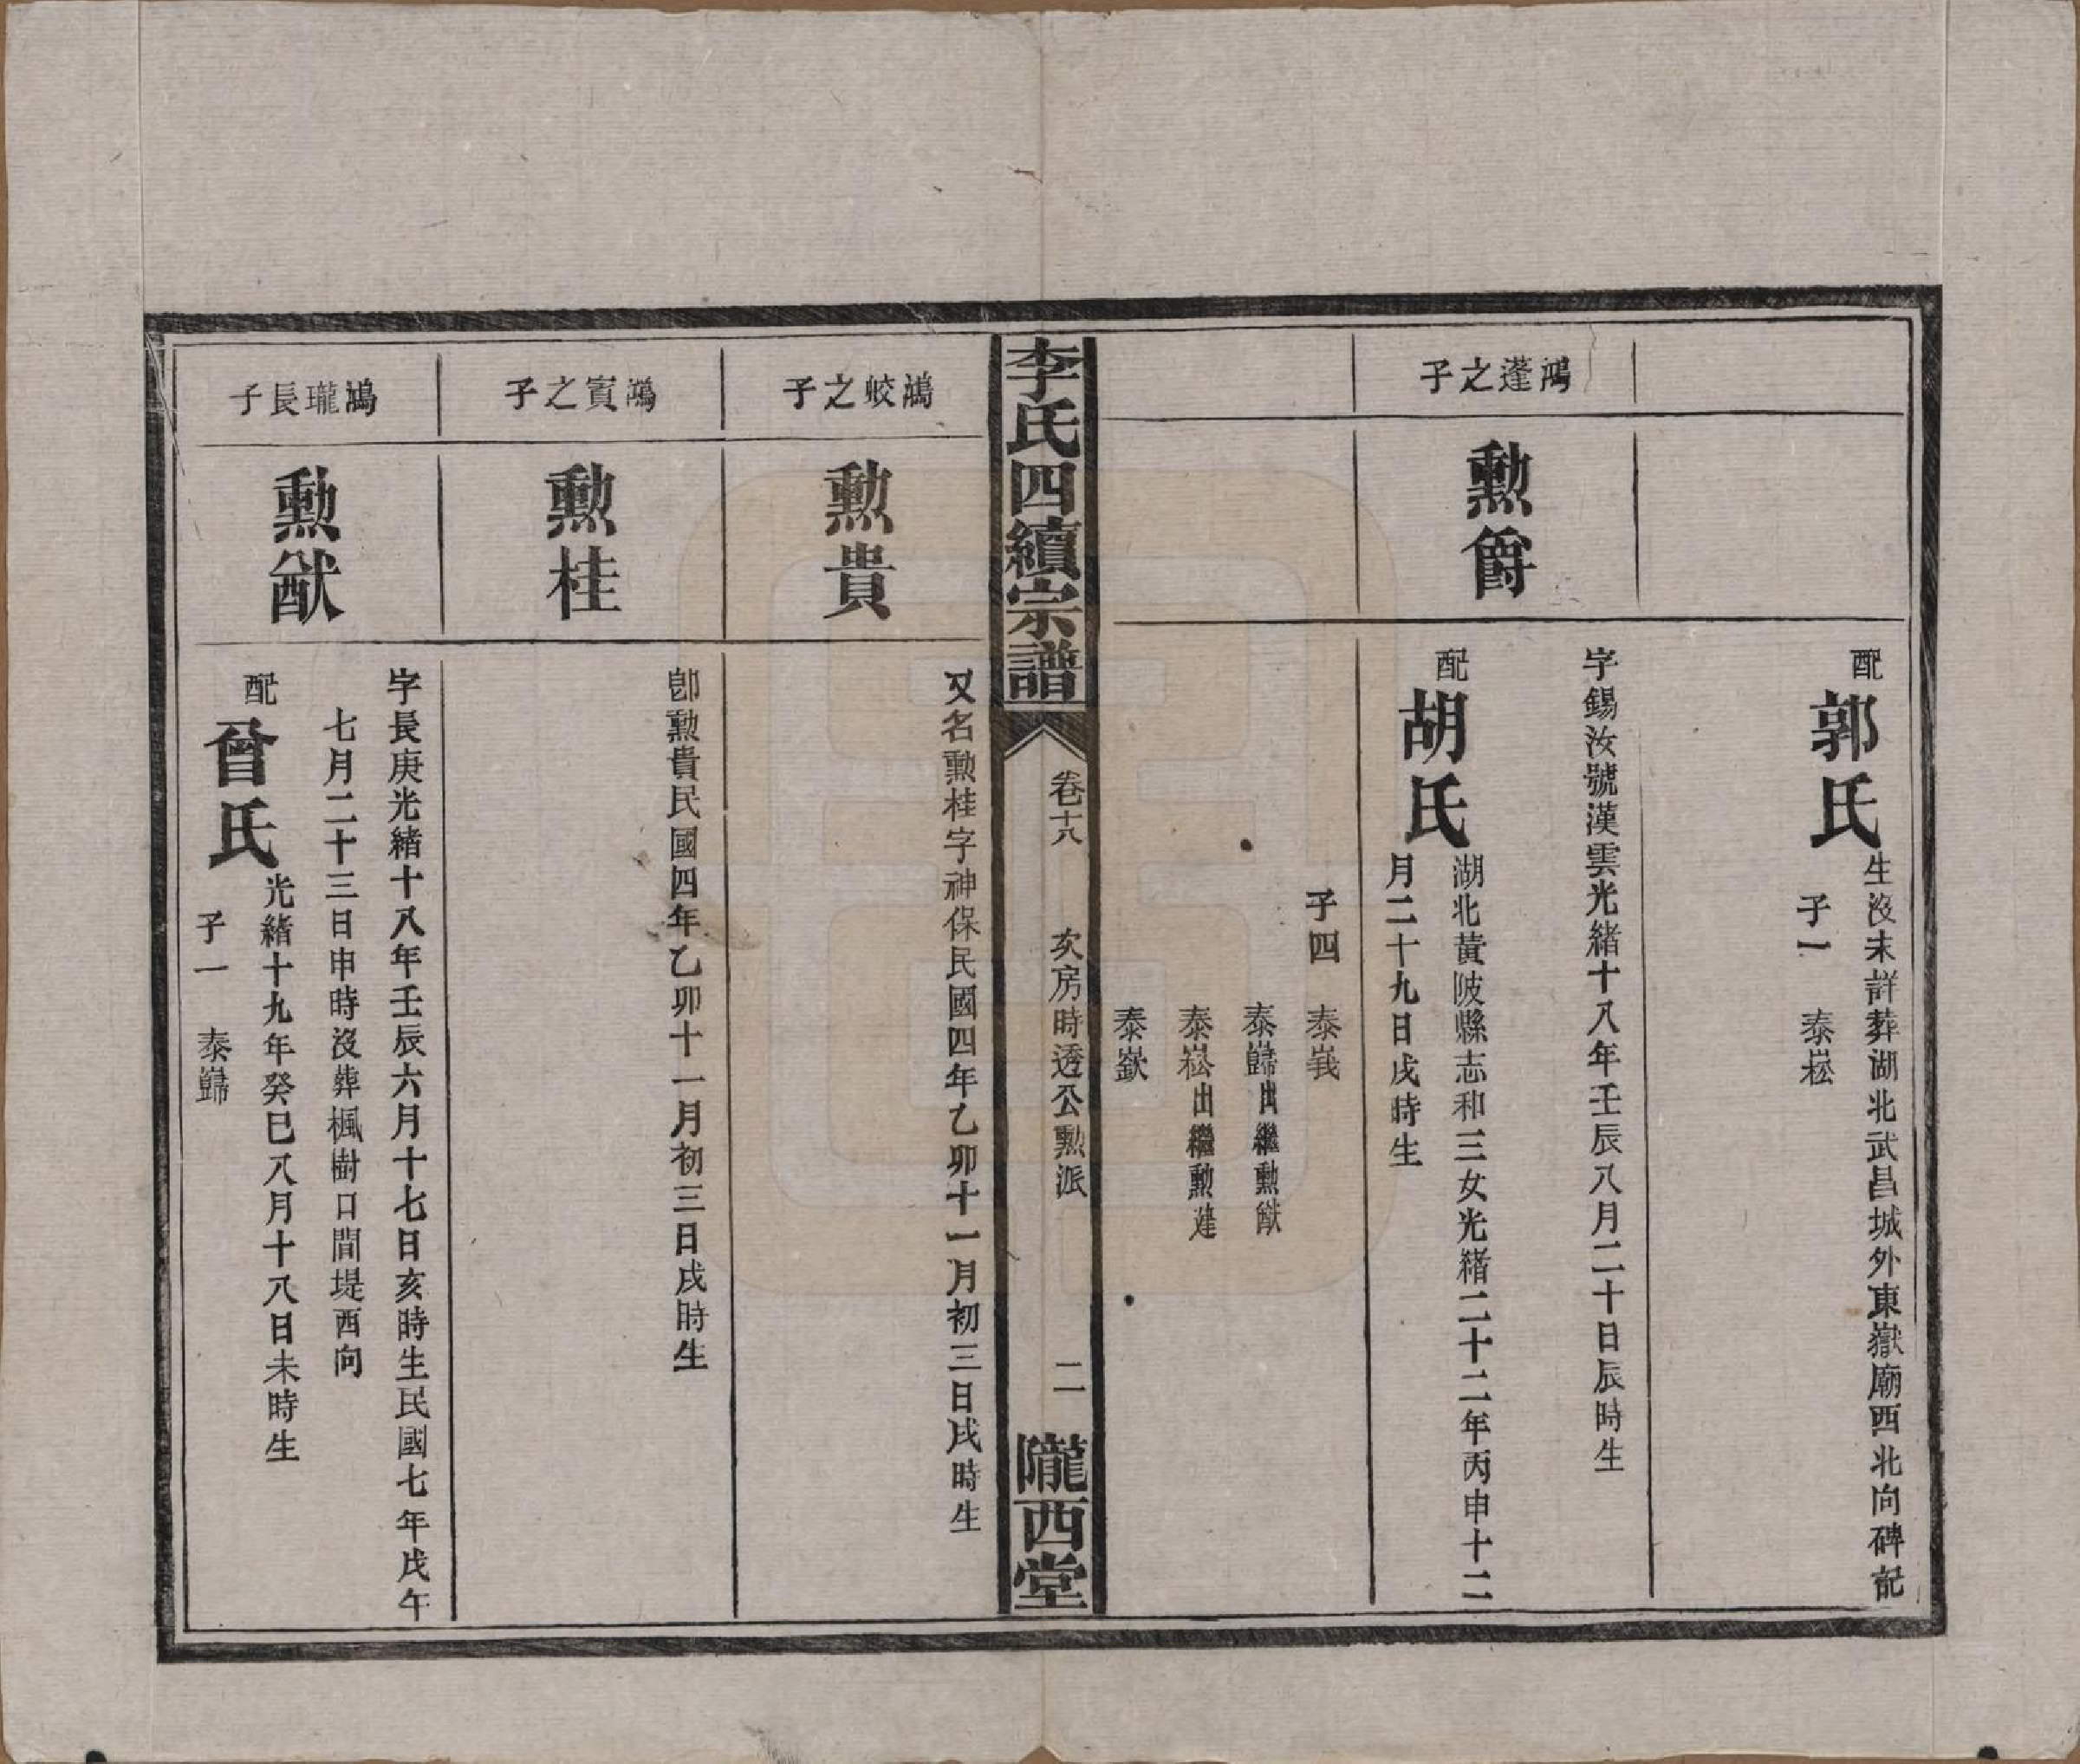 配郭氏
生沒未詳葬湖北武昌城外東嶽廟西北向碑記
子一 泰崧
鴻蓬之子
勲爵
字錫汝號漢雲光緒十八年壬辰八月二十日辰時生
配胡氏
湖北黃陂縣志和三女光緒二十二年丙申十二
月二十九日戌時生
子四 泰峩
泰巋出繼勲猷
泰崧出繼勲蓬
泰嶔
李氏四續宗譜
卷十八
亥房時透公勲派
二
隴西堂
鴻蛟之子
勲貴
又名勲桂字神保民國四年乙卯十一月初三日戌時生
鴻賓之子
勲桂
卽勲貴民國四年乙卯十一月初三日戌時生
鴻瓏長子
勲猷
字長庚光緒十八年壬辰六月十七日亥時生民國七年戊午
七月二十三日申時沒葬楓樹口間堤西向
配曾氏
光緒十九年癸巳八月十八日未時生
子一 泰巋